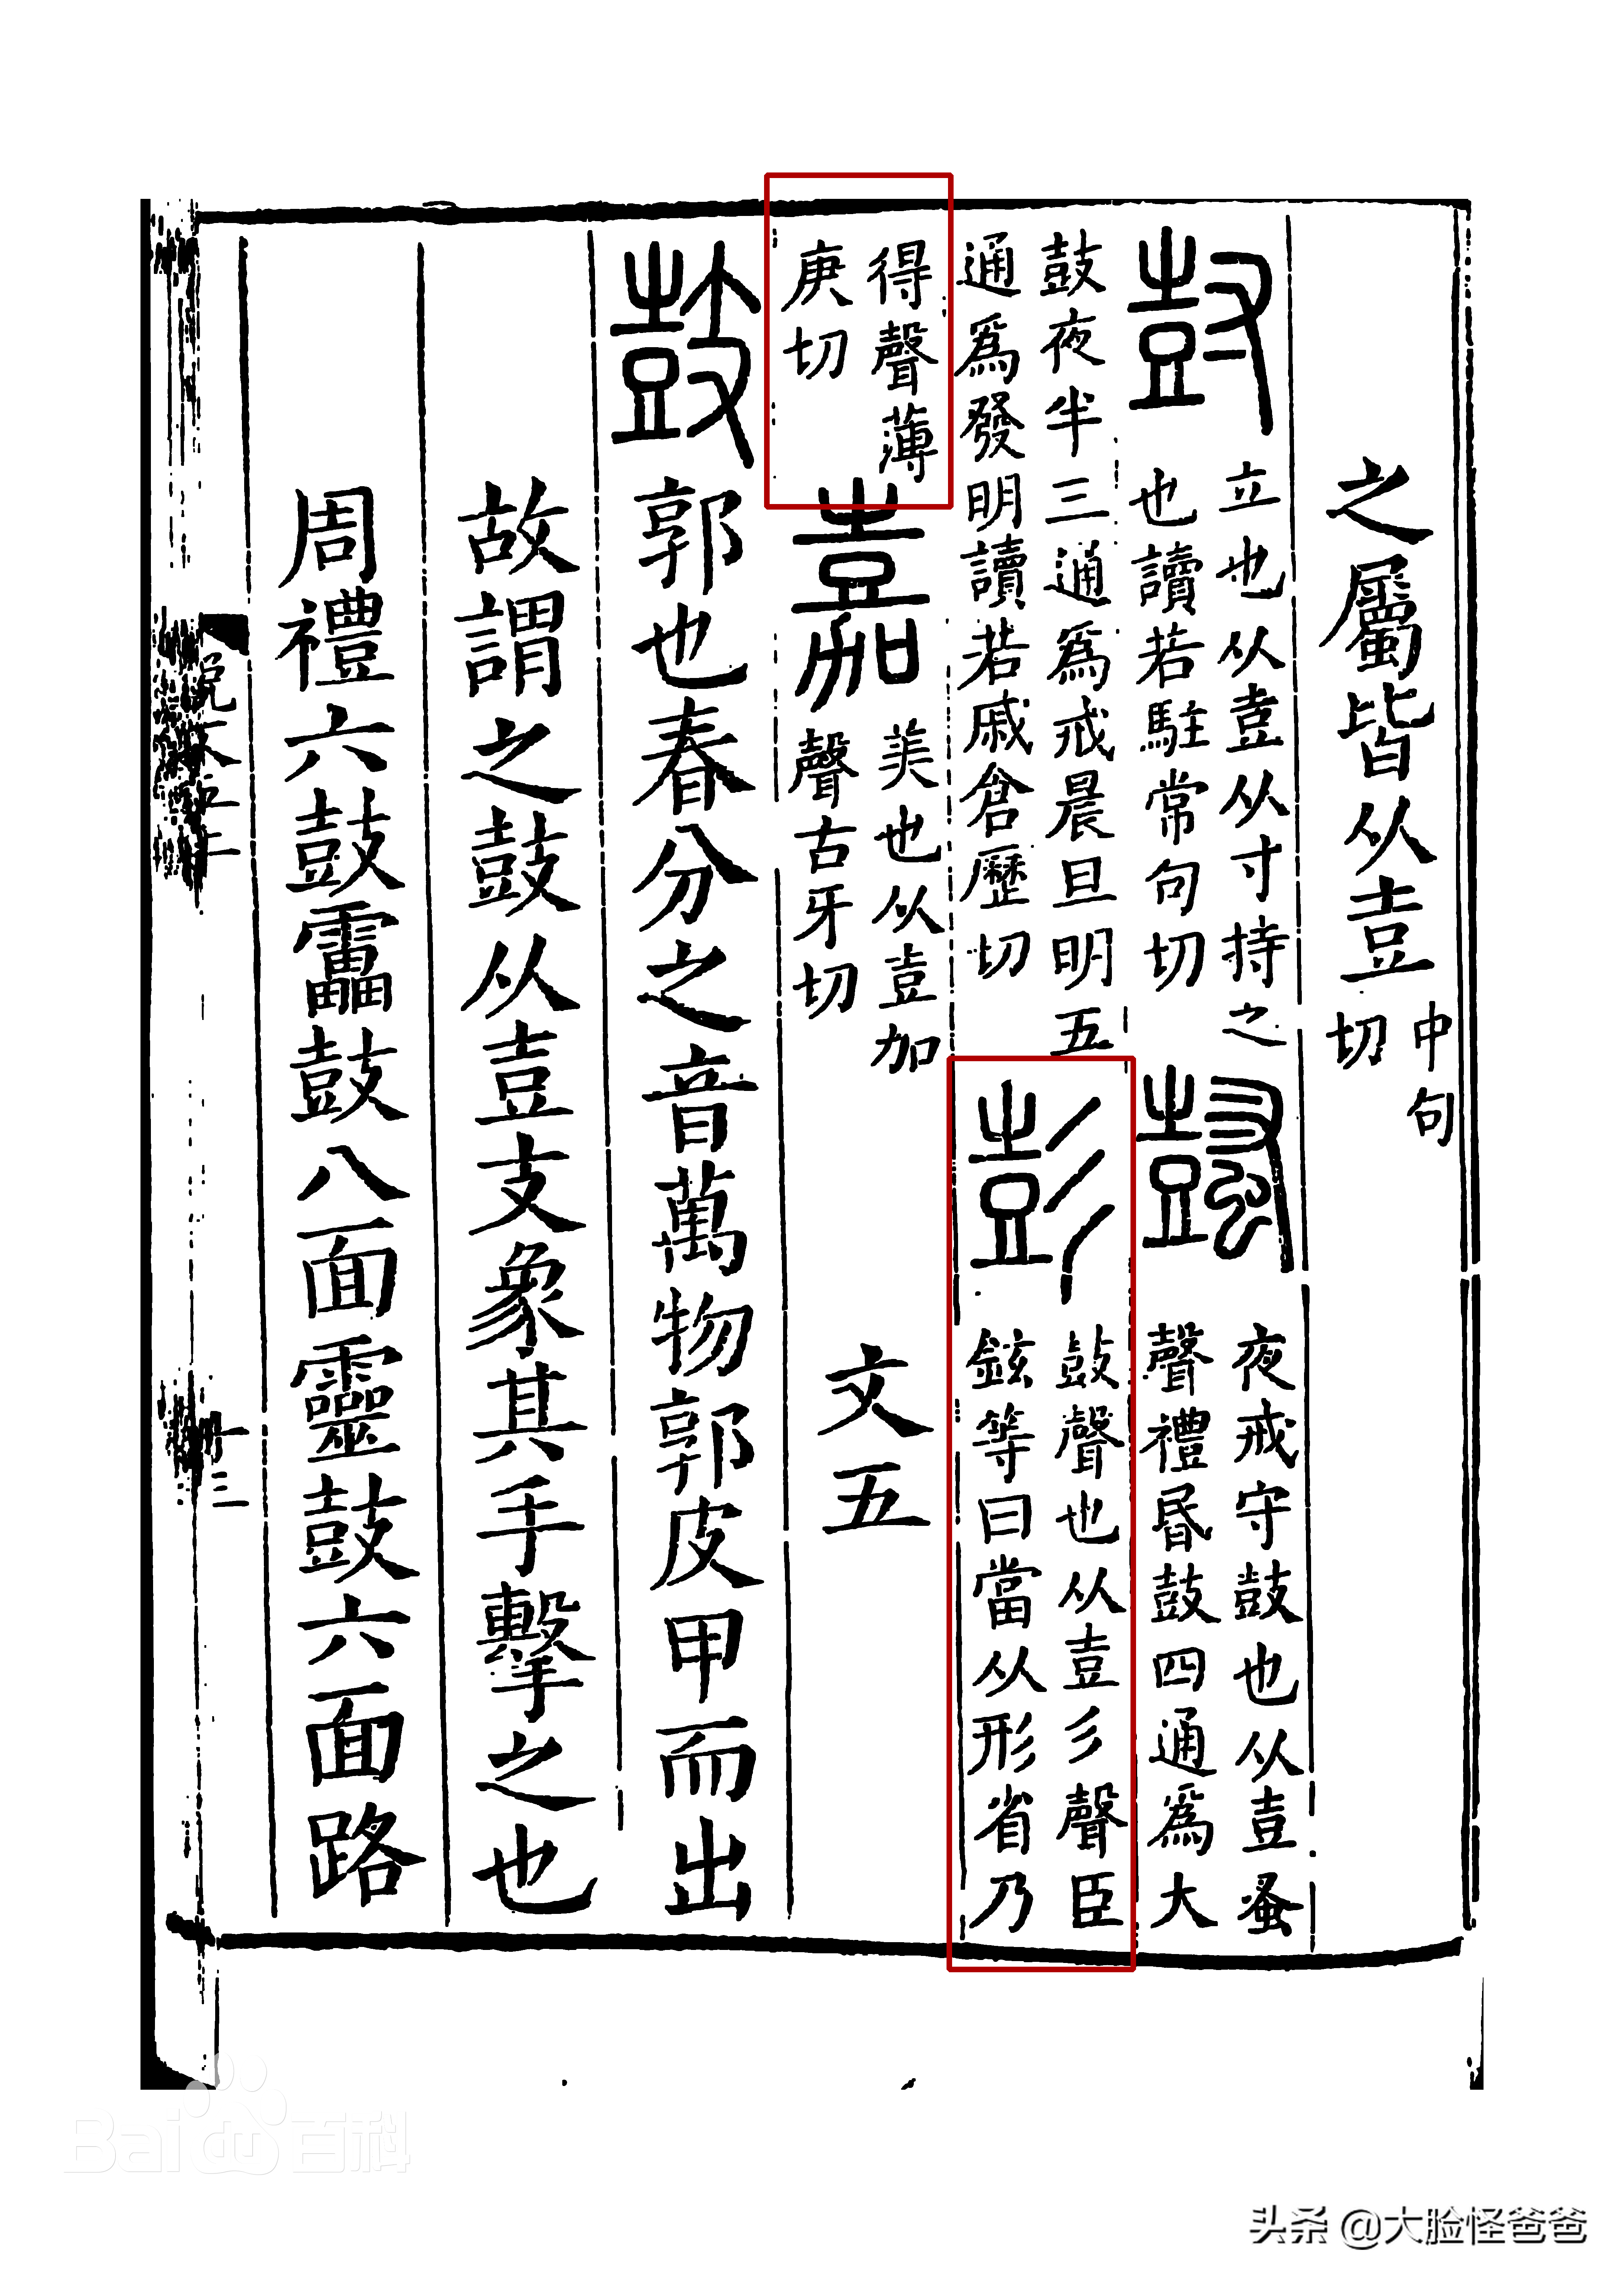 之屬皆从壴中句切
尌立也从壴从寸持之也讀若駐常句切
鼜夜戒守鼓也从壴蚤聲禮昏鼓四通為大
鼓夜半三通為戒晨旦明五通為發明讀若戚倉歷切
彭鼓聲也从壴彡聲臣鉉等曰當从形省乃
得聲薄庚切
嘉美也从壴加聲古牙切
文五
鼓郭也春分之音萬物郭皮甲而出
故謂之鼓从壴支象其手擊之也
周禮六鼓靁鼓八面靈鼓六面路
說文五上
十三
Baidu百科
头条 @大脸怪爸爸